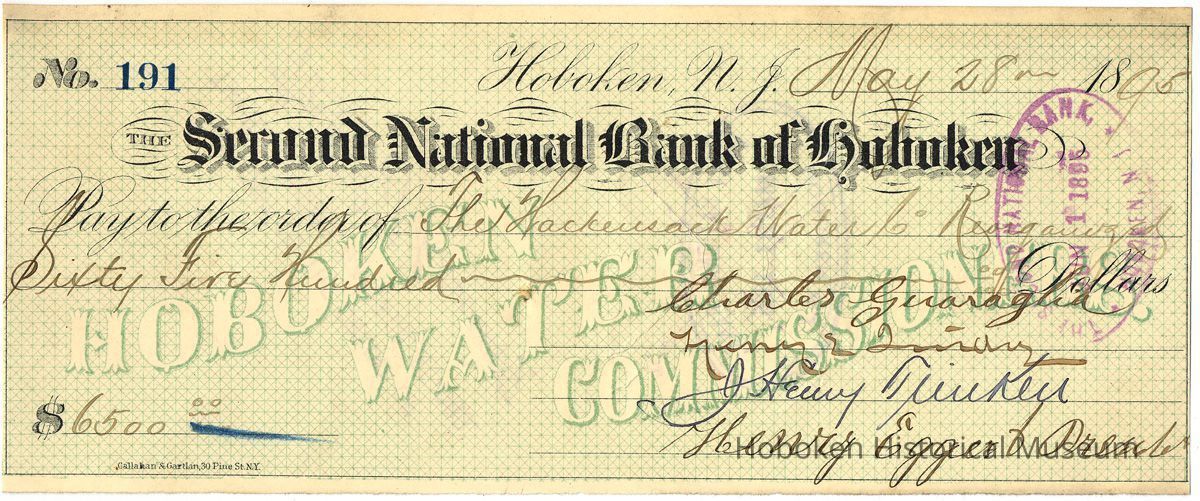 No. 191
Hoboken, N. J. May 28th 1895
THE Second National Bank of Hoboken
Pay to the order of The Hackensack Water Co Reorganized
Sixty Five Hundred Dollars
HOBOKEN WATER COMMISSIONERS
Charles Guaragna
Henry
J Henry Timken
$ 6500 00
Henry Eggert Prest
Hoboken Historical Museum
Callahan & Gartlan, 30 Pine St. N.Y.
THE SECOND NATIONAL BANK,
JUN 1 1895
HOBOKEN N J